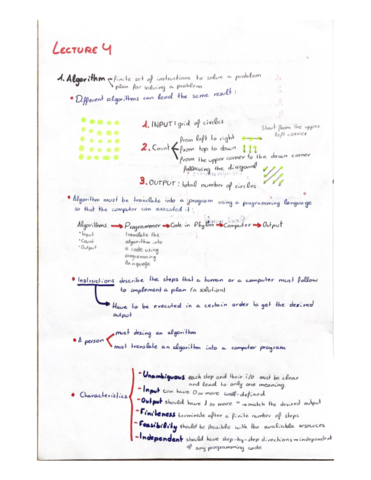 LECTURE 4
1. Algorithm finite set of instructions to solve a problem
plan for solving a problem
• Different algorithms can lead the same result:
1. INPUT: grid of circles
2. Count
from left to right
from top to down
from the upper corner to the down corner
following the diagonal
Start from the upper
left corner
3. OUTPUT: total number of circles
• Algorithm must be translate into a program using a programming language
so that the computer can executed it:
Algorithms → Programmer → Code in → Computer → Output
• Input
• Count
• Output
translate the
algorithm into
a code using
programming
language
• Instructions describe the steps that a human or a computer must follow
to implement a plan (a solution)
Have to be executed in a certain order to get the desired
output
• A person
must desing an algorithm
must translate an algorithm into a computer program
• Characteristics
- Unambiguous each step and their i/o must be clear
and lead to only one meaning
- Input can have 0 or more well-defined
- Output should have 1 or more match the desired output
- Finiteness terminate after a finite number of steps
- Feasibility should be feasible with the available resources
- Independent should have step-by-step directions independent
of any programming code